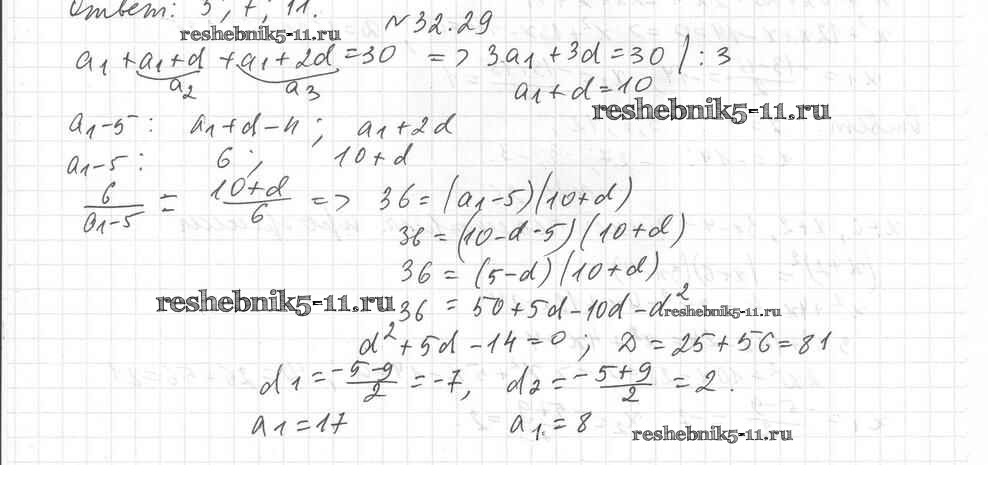 Ответ: 3; 7; 11.
№32.29
reshebnik5-11.ru
a1 + a1+d + a1+2d = 30 => 3a1 + 3d = 30 / : 3
a2 a3 a1+d=10
reshebnik5-11.ru
a1-5 : a1+d-4 ; a1+2d
a1-5 : 6 ; 10+d
6/(a1-5) = (10+d)/6 => 36 = (a1-5)(10+d)
36 = (10-d-5)(10+d)
36 = (5-d)(10+d)
reshebnik5-11.ru
36 = 50+5d-10d-d²
reshebnik5-11.ru
d²+5d-14=0 ; D=25+56=81
d1 = (-5-9)/2 = -7, d2 = (-5+9)/2 = 2.
a1=17 a1=8
reshebnik5-11.ru